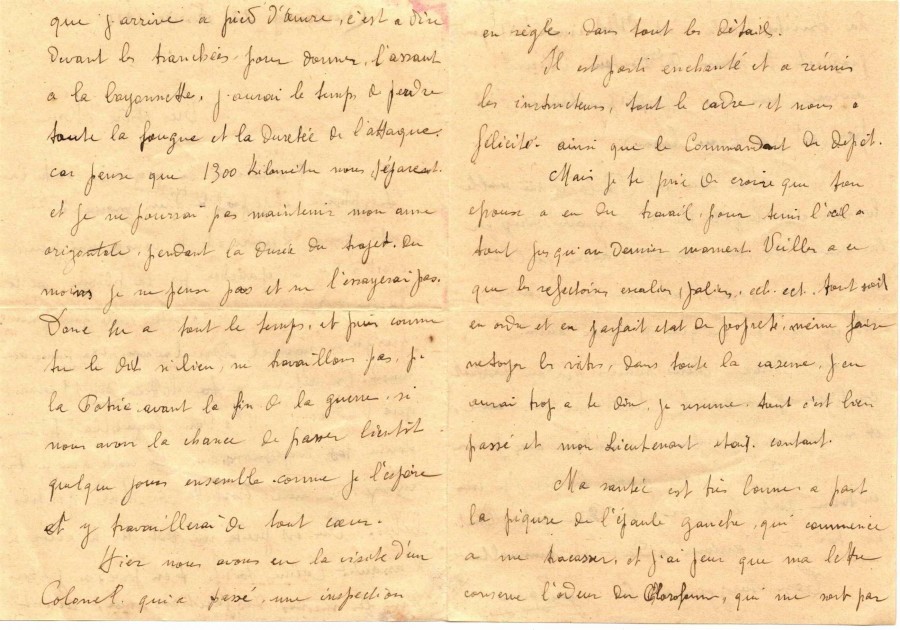 que j'arrive a pied d'œuvre, c'est a dire
devant les tranchées, pour donner, l'assaut
a la bayonnette, j'aurai le temps de perdre
toute la fougue et la duretée de l'attaque,
car pense que 1300 Kilomètre nous séparent.
et je ne pourrai pas maintenir mon arme
orizontale, pendant la durée du trajet. du
moins je ne pense pas et ne l'essayerai pas.
Donc tu a tout le temps, et puis comme
tu le dit si bien, ne travaillons pas, p.
la Patrie avant la fin de la guerre, si
nous avons la chance de passer bientôt
quelque jours ensemble comme je l'espère
et y travaillerai de tout cœur.
Hier nous avons eu la visite d'un
Colonel qui a passé une inspection
en règle. dans tout les détail.
Il est parti enchanté et a réunis
les instructeurs, tout le cadre, et nous a
félicité. ainsi que le Commandant de dépôt.
Mais je te prie de croire que ton
epouse a eu du travail, pour tenir l'œil a
tout jusqu'au dernier moment. Veiller a ce
que les refectoires escalier, paliers, ect. ect. tout soit
en ordre et en parfait etat de propreté, même faire
netoyer les vitres, dans toute la caserne, j'en
aurai trop a te dire, je resume. tout c'est bien
passé et mon Lieutenant etait contant.
Ma santé est très bonne a part
la piqure de l'épaule gauche, qui commence
a me tracasser, et j'ai peur que ma lettre
conserve l'odeur du Cloroforme, qui me sort par